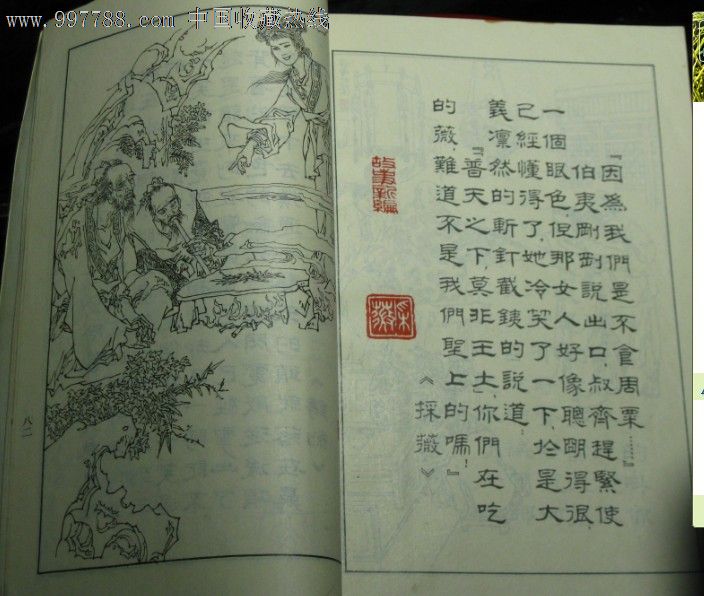 www.997788.com 中国收藏热线
『因為我們是不食周粟……』
伯夷剛剛說出口，叔齊趕緊使
一個眼色，但那女人好像聰明得很，
已經懂得了。她冷笑了一下，於是大
義凜然的斬釘截銕的說道：
『普天之下，莫非王土，你們在吃
的薇，難道不是我們聖上的嗎！』
《採薇》
故事新編
采薇
八二